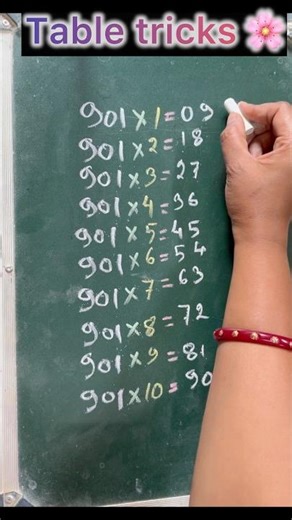 Table tricks 🌸
901 x 1 = 09
901 x 2 = 18
901 x 3 = 27
901 x 4 = 36
901 x 5 = 45
901 x 6 = 54
901 x 7 = 63
901 x 8 = 72
901 x 9 = 81
901 x 10 = 90